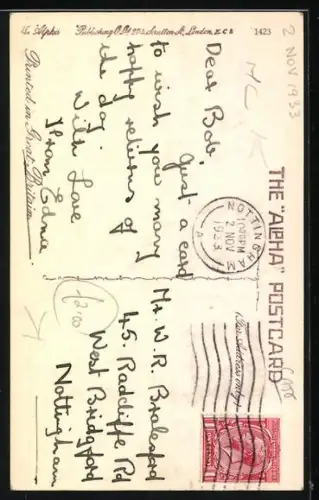 THE "ALPHA" POSTCARD
The "Alpha" Publishing Co. Ltd. 2 & 3, Scrutton St., London, E.C.2
1423
Printed in Great Britain
(For Address only)
2 NOV 1933
NOTTINGHAM
10.15PM
2 NOV
1933
A
Dear Bob,
Just a card
to wish you many
happy returns of
the day.
With Love
From Edna
Mr. W. R. Brailsford
45 Radcliffe Rd
West Bridgford
Nottingham
£2.00